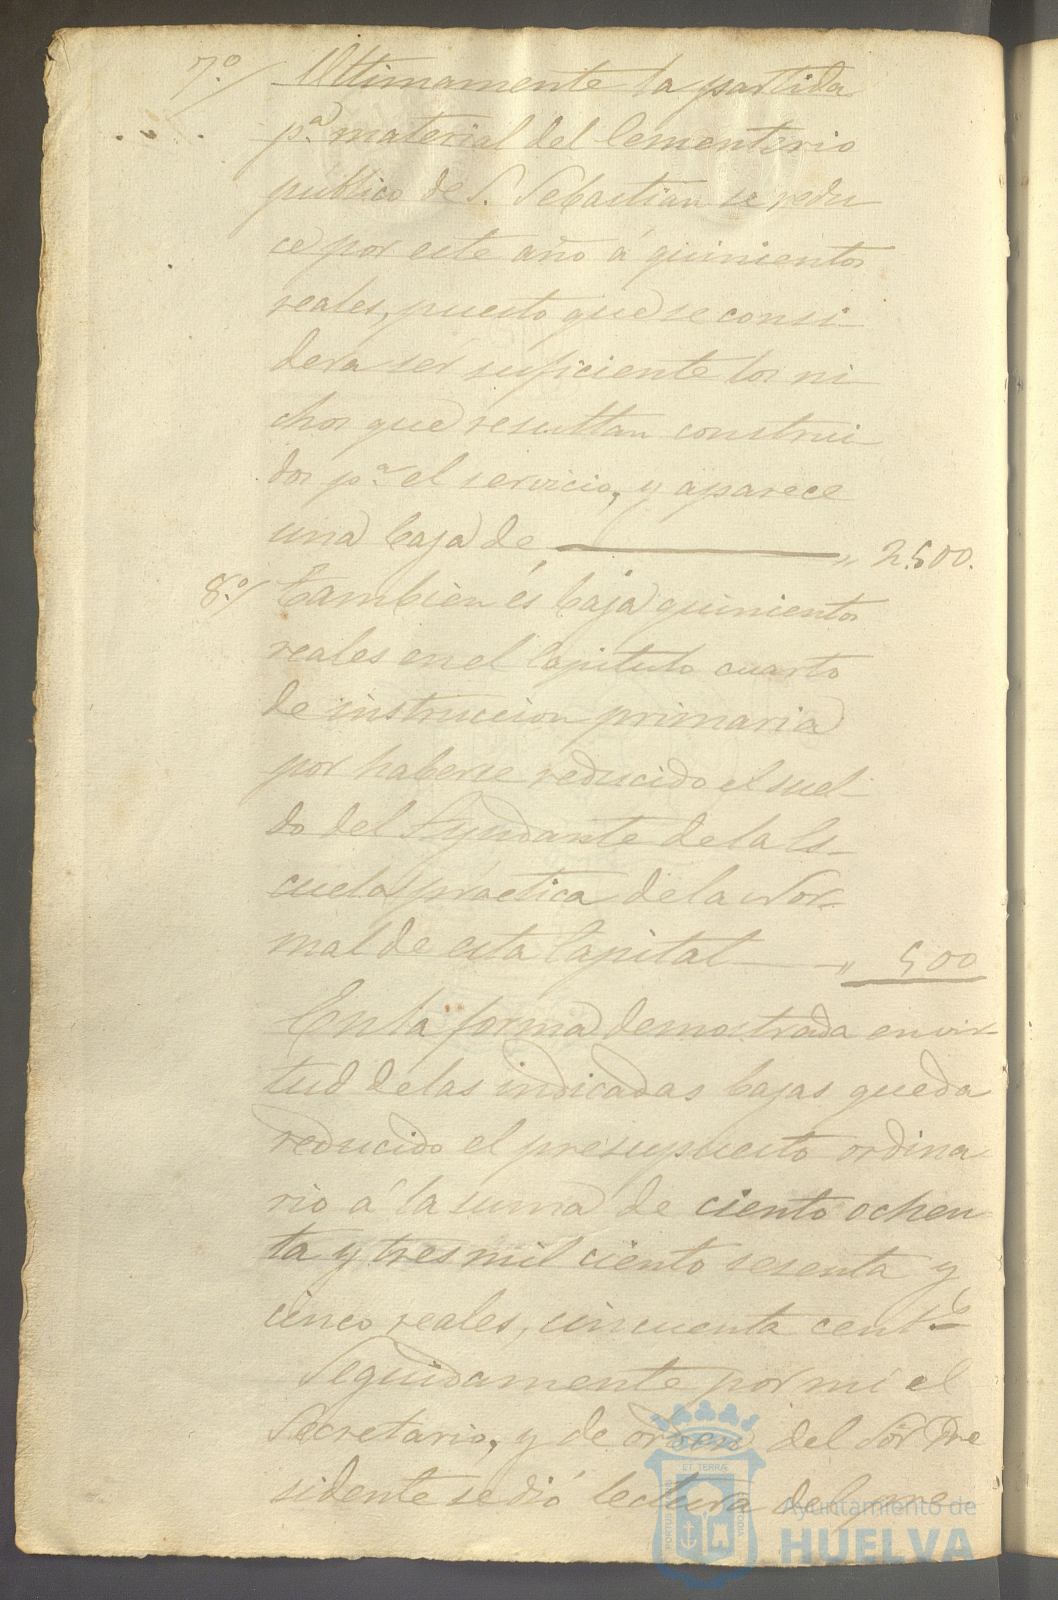 7.º/ Ultimamente la partida
p.ª material del Cementerio
publico de S. Sebastian se redu
ce por este año á quinientos
reales, puesto que se consi-
dera ser suficiente los ni-
chos que resultan construi-
dos p.ª el servicio, y aparece
una baja de ——— „ 2.500.
8.º/ Tambien és baja quinientos
reales en el Capitulo cuarto
de instruccion primaria
por haberse reducido el suel-
do del Ayudante de la Es-
cuela práctica de la Nor-
mal de esta Capital — „ 500
En la forma demostrada en vir-
tud de las indicadas bajas queda
reducido el presupuesto ordina
rio á la suma de ciento ochen
ta y tres mil ciento sesenta y
cinco reales, cincuenta cent.s
Seguidamente por mi el
Secretario, y de orden del Sör Pre
sidente se dió lectura del pre-
ET TERRÆ
PORTUS MARIS
CUSTODIA
Ayuntamiento de
HUELVA